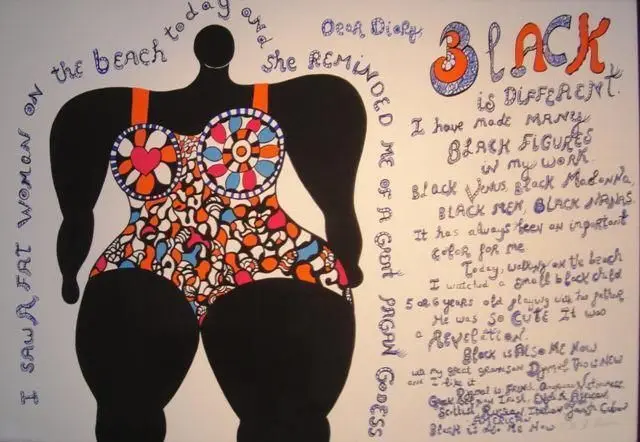 I SAW A FAT WOMAN ON the bEACH today and she REMINDED ME OF A GREAT PAGAN GODESS
Dear Diary
BLACK
is DIFFERENT.
I have made MANY
BLACK FIGURES
in my work.
Black Venus, Black Madonna,
BLACK MEN, BLACK NANAS.
It has always been an important
color for me.
Today, walking on the beach
I watched a small black child
5 or 6 years old playing with his father
He was so CUTE It was
a REVELATION.
Black is Also Me Now
with my great grandson Djamal this is NEW
and I like it
Djamal is French, American Vietnamese,
Greek German Irish, English African,
Scottish, Russian Italian Jewish Cuban
AMERICAN
Black is also Me Now